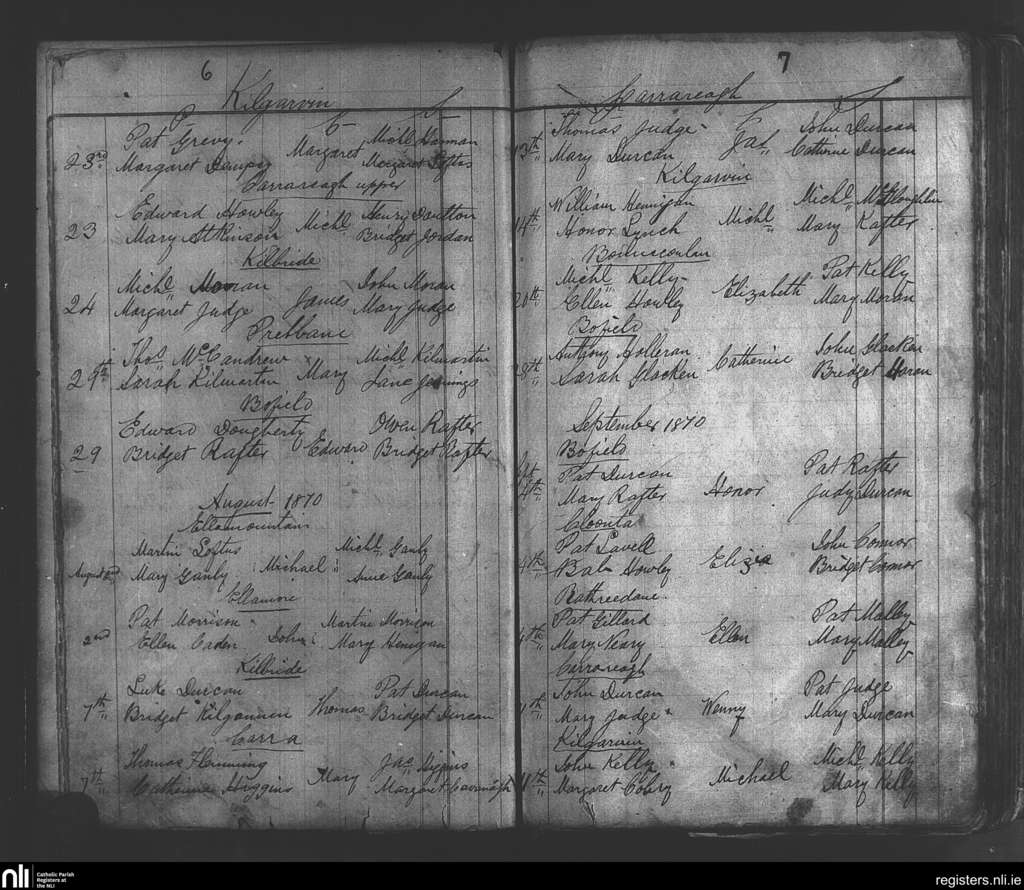 6
Kilgarvin
P C S
Pat Grevy.
Michl Hannan
23rd Margaret Margaret Margaret Loftus
Carrareagh upper
Edward Howley Henry Doutton
23 Mary Atkinson Michl Bridget Jordan
Kilbride
Michl Moran John Moran
24 Margaret Judge James Mary Judge
Prebbane
Thos McCandrew Michl Kilmartin
29th Sarah Kilmartin Mary Jane Jennings
Bofield
Edward Dougherty Owen Rafter
29 Bridget Rafter Edward Bridget Rafter
August 1870
Ellamountain
Martin Loftus Michl Ganly
August 2nd Mary Ganly Michael Anne Ganly
Ellamore
Pat Morrison Martin Morrison
2nd Ellen Caden John Mary Henigan
Kilbride
Luke Durcan Pat Durcan
7th Bridget Kilgannon Thomas Bridget Durcan
Carra
Thomas Flemming Jas Higgins
7th Catherine Higgins Mary Margaret Cavanagh
7
Carrareagh
P C S
Thomas Judge John Durcan
13th Mary Durcan Jas Catherine Durcan
Kilgarvin
William Henigan Michl McLoughlin
14th Honor Lynch Michl Mary Rafter
Michl Kelly Pat Kelly
20th Ellen Howley Elizabeth Mary Moran
Bofield
Anthony Holleran John Glacken
28th Sarah Glacken Catherine Bridget Horan
September 1870
Bofield
Pat Durcan Pat Rafter
Spt 4th Mary Rafter Honor Judy Durcan
Cloonta
Pat Lavell John Connor
4th Bab Howley Eliza Bridget Connor
Rathreedane
Pat Gillard Pat Malley
4th Mary Neary Ellen Mary Malley
Carrareagh
John Durcan Pat Judge
11th Mary Judge Wenny Mary Durcan
Kilgarvin
John Kelly Michl Kelly
11th Margaret Michael Mary Kelly
nli Catholic Parish
Registers at
the NLI
registers.nli.ie